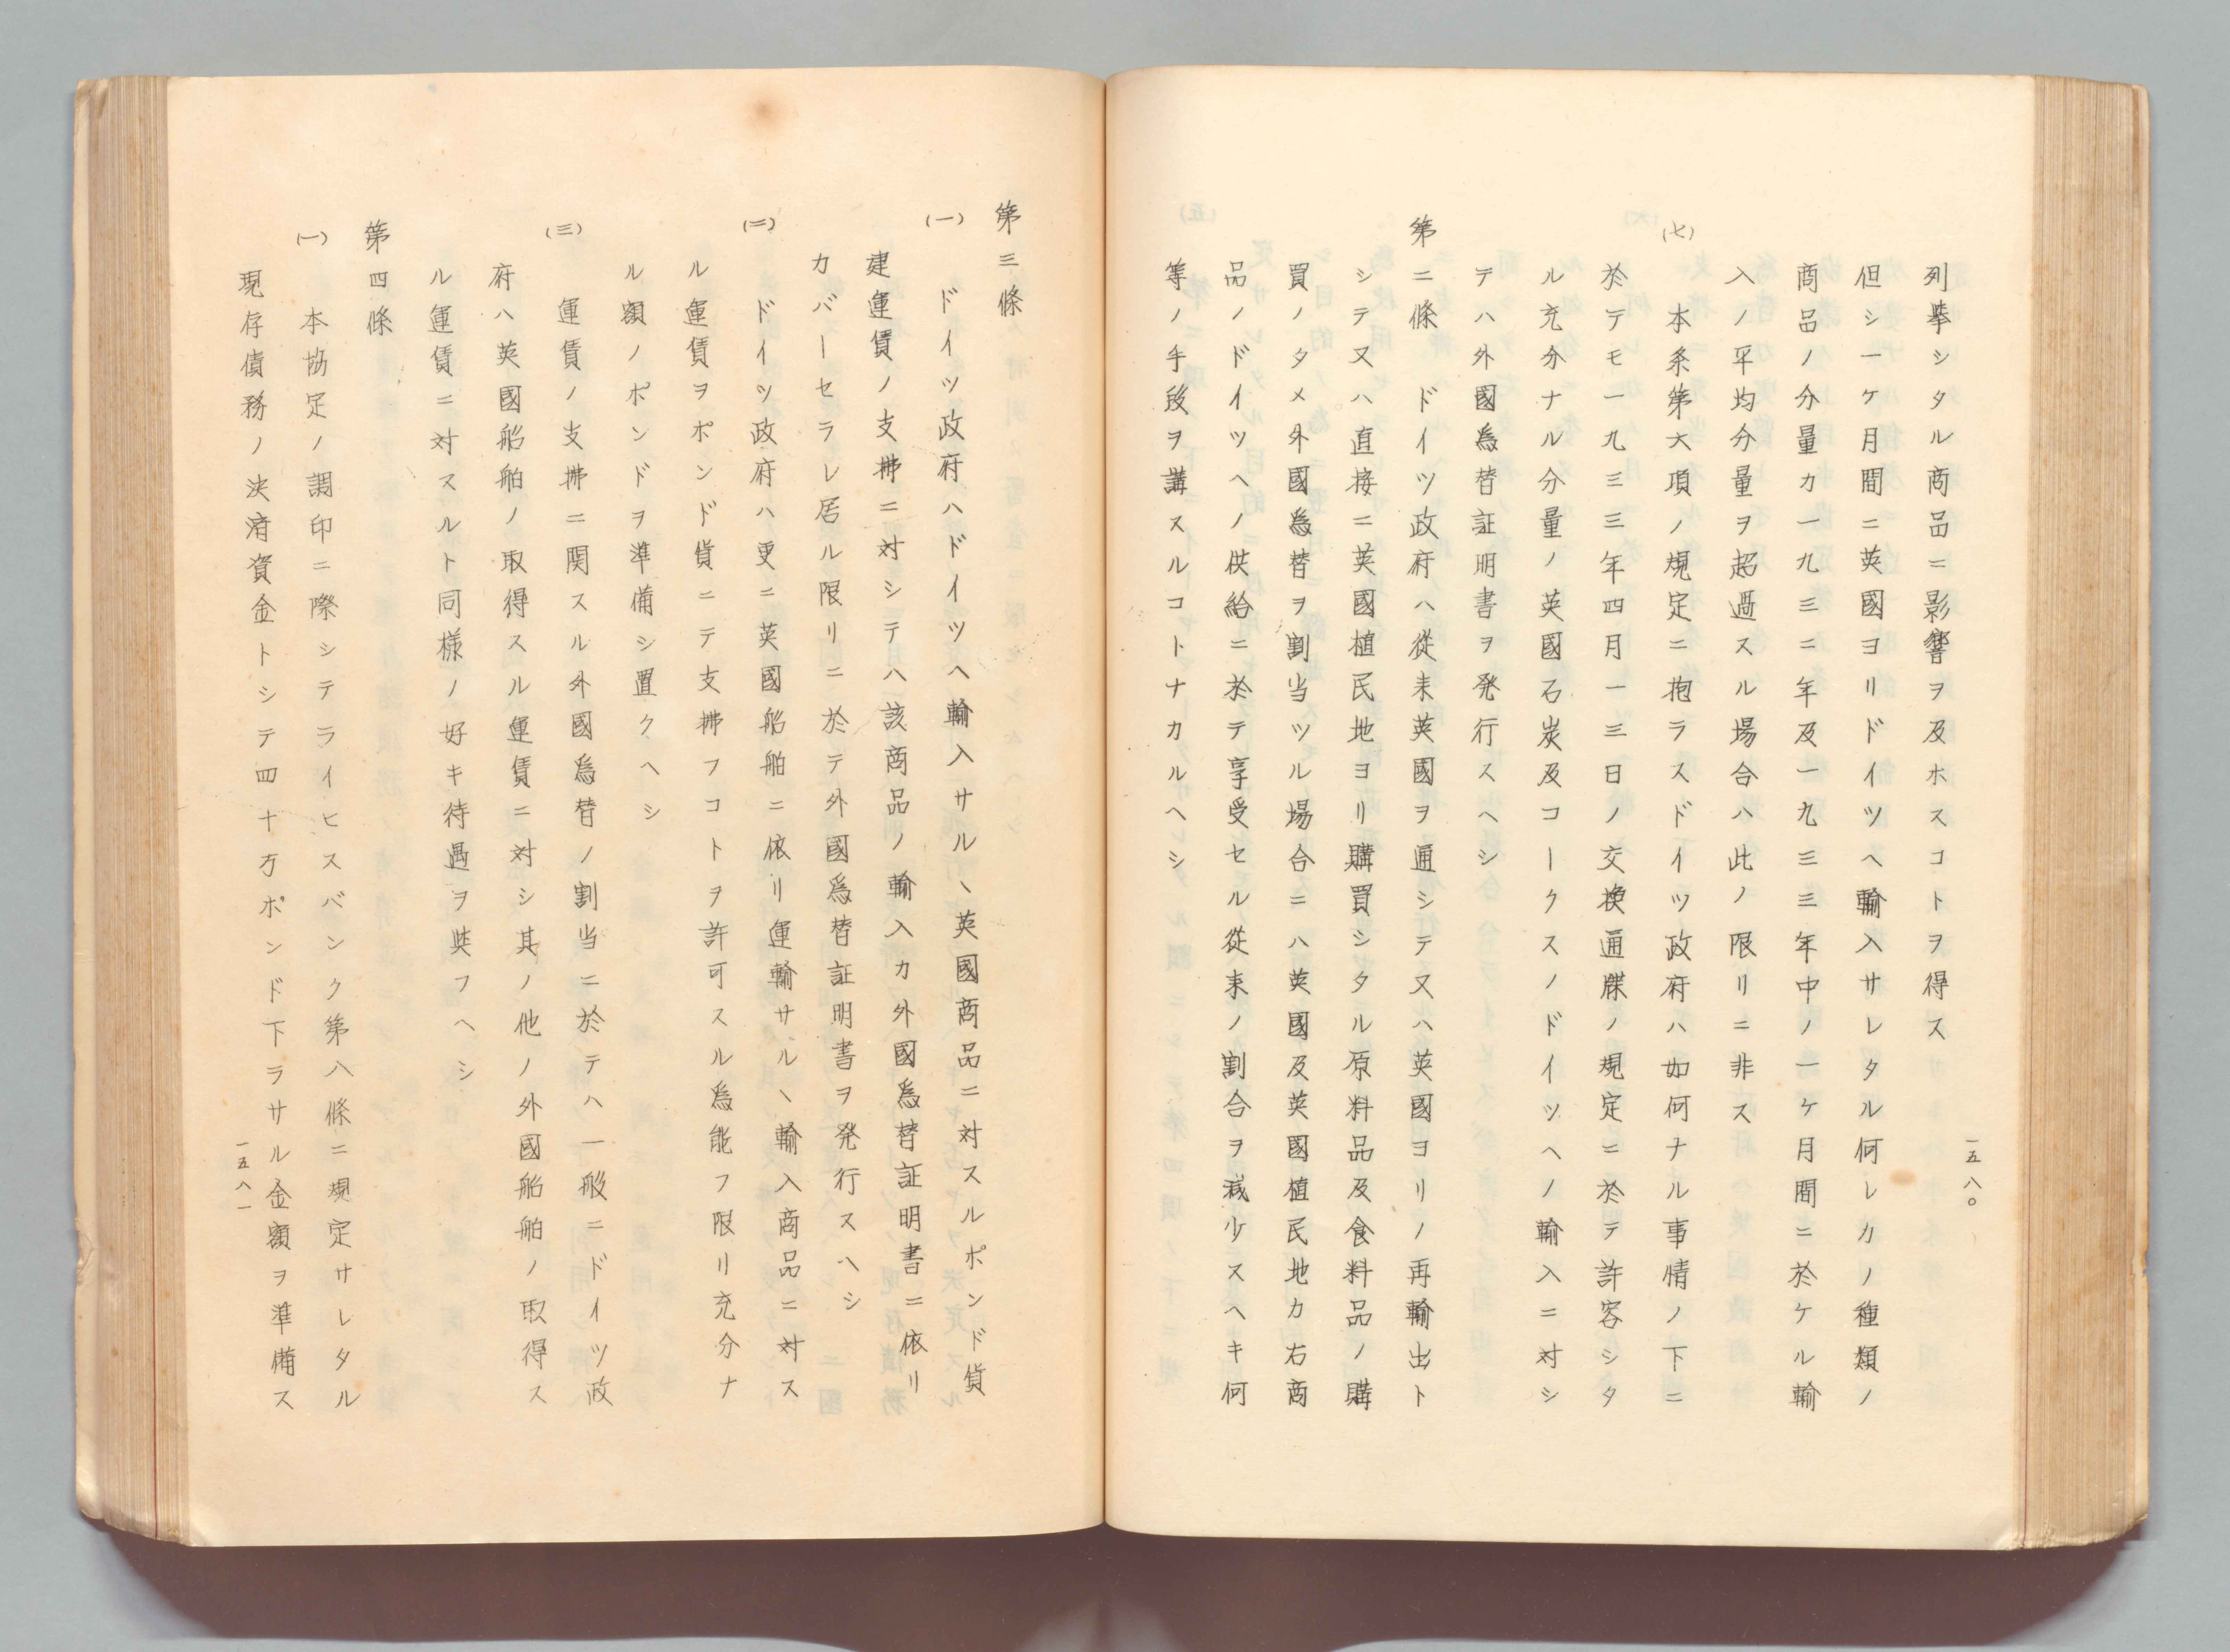 一五八〇
列挙シタル商品ニ影響ヲ及ホスコトヲ得ス
但シ一ケ月間ニ英國ヨリドイツヘ輸入サレタル何レカノ種類ノ
商品ノ分量カ一九三二年及一九三三年中ノ一ケ月間ニ於ケル輸
入ノ平均分量ヲ超過スル場合ハ此ノ限リニ非ス
(七)本条第六項ノ規定ニ抱ラスドイツ政府ハ如何ナル事情ノ下ニ
於テモ一九三三年四月一三日ノ交換通牒ノ規定ニ於テ許容シタ
ル充分ナル分量ノ英國石炭及コークスノドイツヘノ輸入ニ対シ
テハ外國為替証明書ヲ発行スヘシ
第二條 ドイツ政府ハ從来英國ヲ通シテ又ハ英國ヨリノ再輸出ト
シテ又ハ直接ニ英國植民地ヨリ購買シタル原料品及食料品ノ購
買ノタメ外國為替ヲ割当ツル場合ニハ英國及英國植民地カ右商
品ノドイツヘノ供給ニ於テ享受セル從来ノ割合ヲ減少スヘキ何
等ノ手段ヲ講スルコトナカルヘシ
第三條
(一)ドイツ政府ハドイツヘ輸入サルヽ英國商品ニ対スルポンド貨
建運賃ノ支拂ニ対シテハ該商品ノ輸入カ外國為替証明書ニ依リ
カバーセラレ居ル限リニ於テ外國為替証明書ヲ発行スヘシ
(二)ドイツ政府ハ更ニ英國船舶ニ依リ運輸サルヽ輸入商品ニ対ス
ル運賃ヲポンド貨ニテ支拂フコトヲ許可スル為能フ限リ充分ナ
ル額ノポンドヲ準備シ置クヘシ
(三)運賃ノ支拂ニ関スル外國為替ノ割当ニ於テハ一般ニドイツ政
府ハ英國船舶ノ取得スル運賃ニ対シ其ノ他ノ外國船舶ノ取得ス
ル運賃ニ対スルト同様ノ好キ待遇ヲ與フヘシ
第四條
(一)本協定ノ調印ニ際シテライヒスバンク第八條ニ規定サレタル
現存債務ノ決済資金トシテ四十万ポンド下ラサル金額ヲ準備ス
一五八一